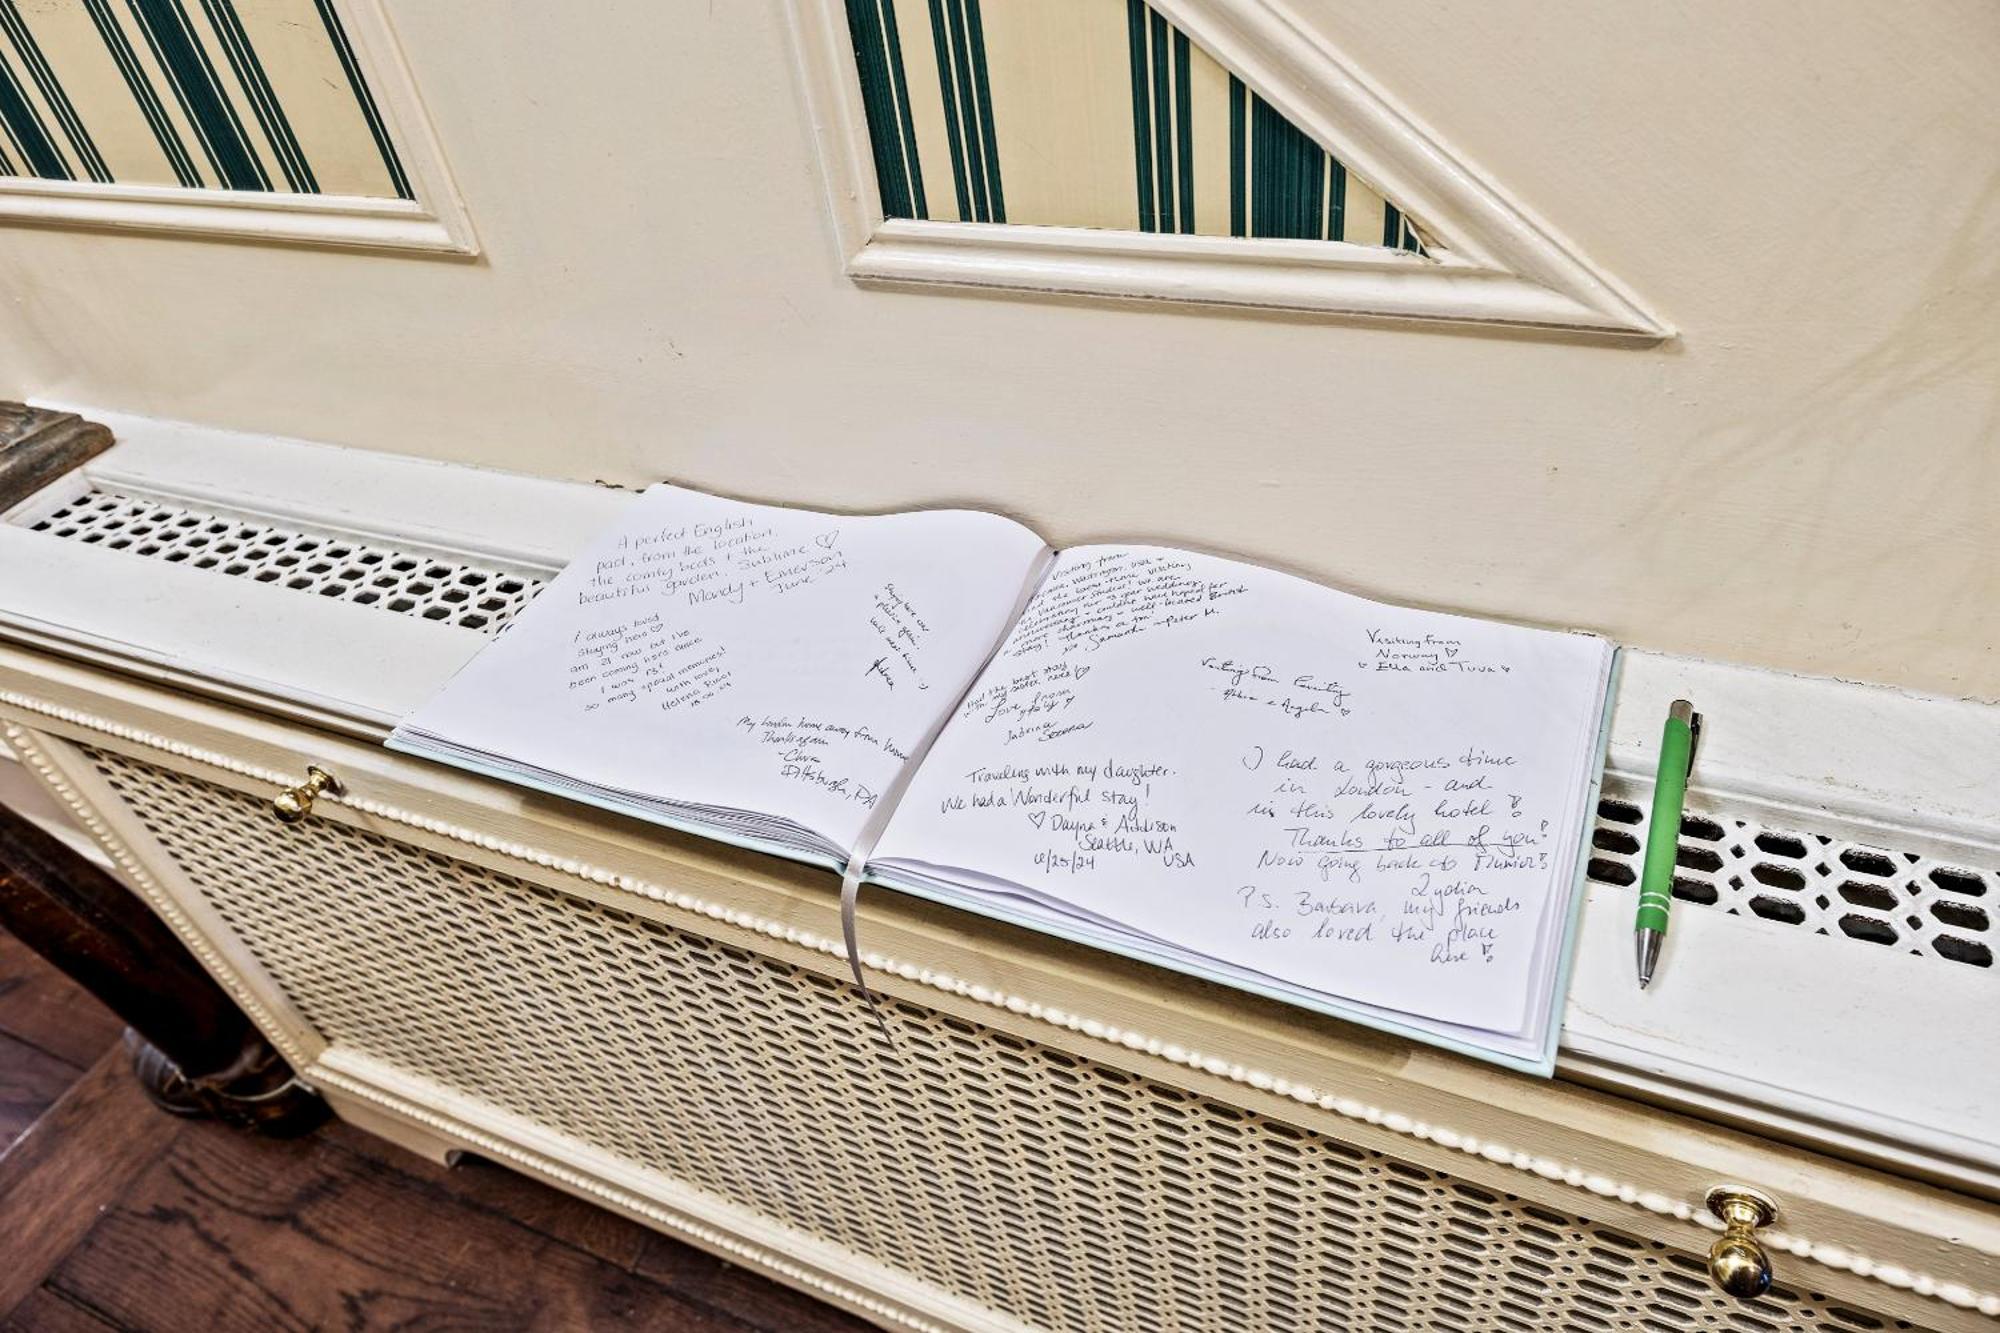 A perfect English
pad, from the location,
the comfy beds + the
beautiful garden. Sublime ♡
Mandy + Emerson
June '24
I always loved
staying here ♡
am 21 now but I've
been coming here since
I was 13!
so many special memories!
with love,
Helena
Staying here was
a pleasure again.
here :)
My London home away from home
Thanks again
Pittsburgh, PA
Visiting from
Washington, USA +
time visiting
Vancouver student! We are
celebrating our wedding
anniversary + couldn't have hoped for
more charming + well-located British
stay! Thanks a
xo Samantha + Peter H.
Had the best stay
with my sister here ♡
Love from
Italy ♡
Sabrina
Serena
Traveling with my daughter.
We had a Wonderful stay!
♡ Dayna & Addison
Seattle, WA
6/25/24 USA
Visiting from
Angela ♡
Visiting from
Norway ♡
♡ Ella and Tuva ♡
I had a gorgeous time
in London - and
in this lovely hotel!
Thanks to all of you!
Now going back to Munich!
Lydia
P.S. Barbara, my friends
also loved the place
here!